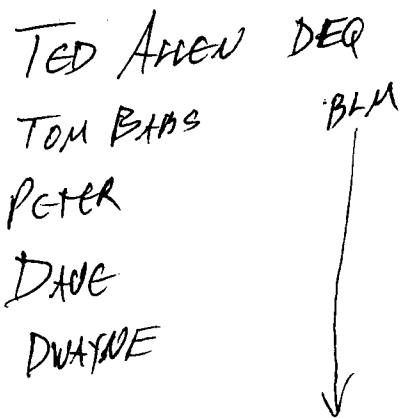 TED ALLEN DEQ
TOM BABS BLM
PETER
DAVE
DWAYNE